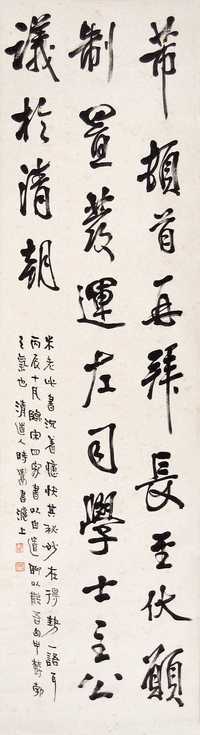 芾頓首再拜長至伏願
制置發運左司學士主公
議於清朝
米老此書沈着穩快其秘妙在得勢一語耳
丙辰十月臨宋四家書以自遣聊以吾匈中勃
之氣也 清道人時鬻書滬上